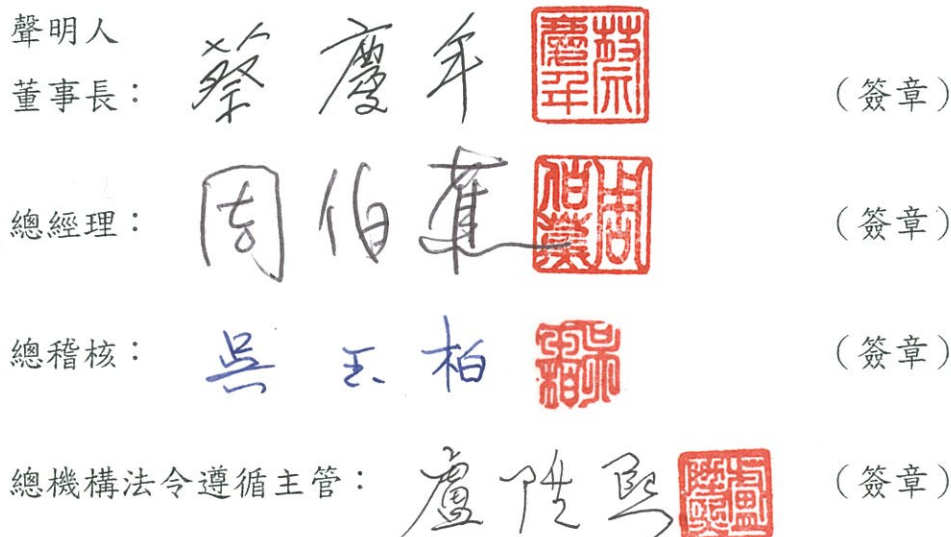 聲明人
董事長：蔡慶年 蔡慶年 （簽章）
總經理：周伯蕉 周伯蕉 （簽章）
總稽核：吳玉柏 吳玉柏 （簽章）
總機構法令遵循主管：盧陞熙 （簽章）